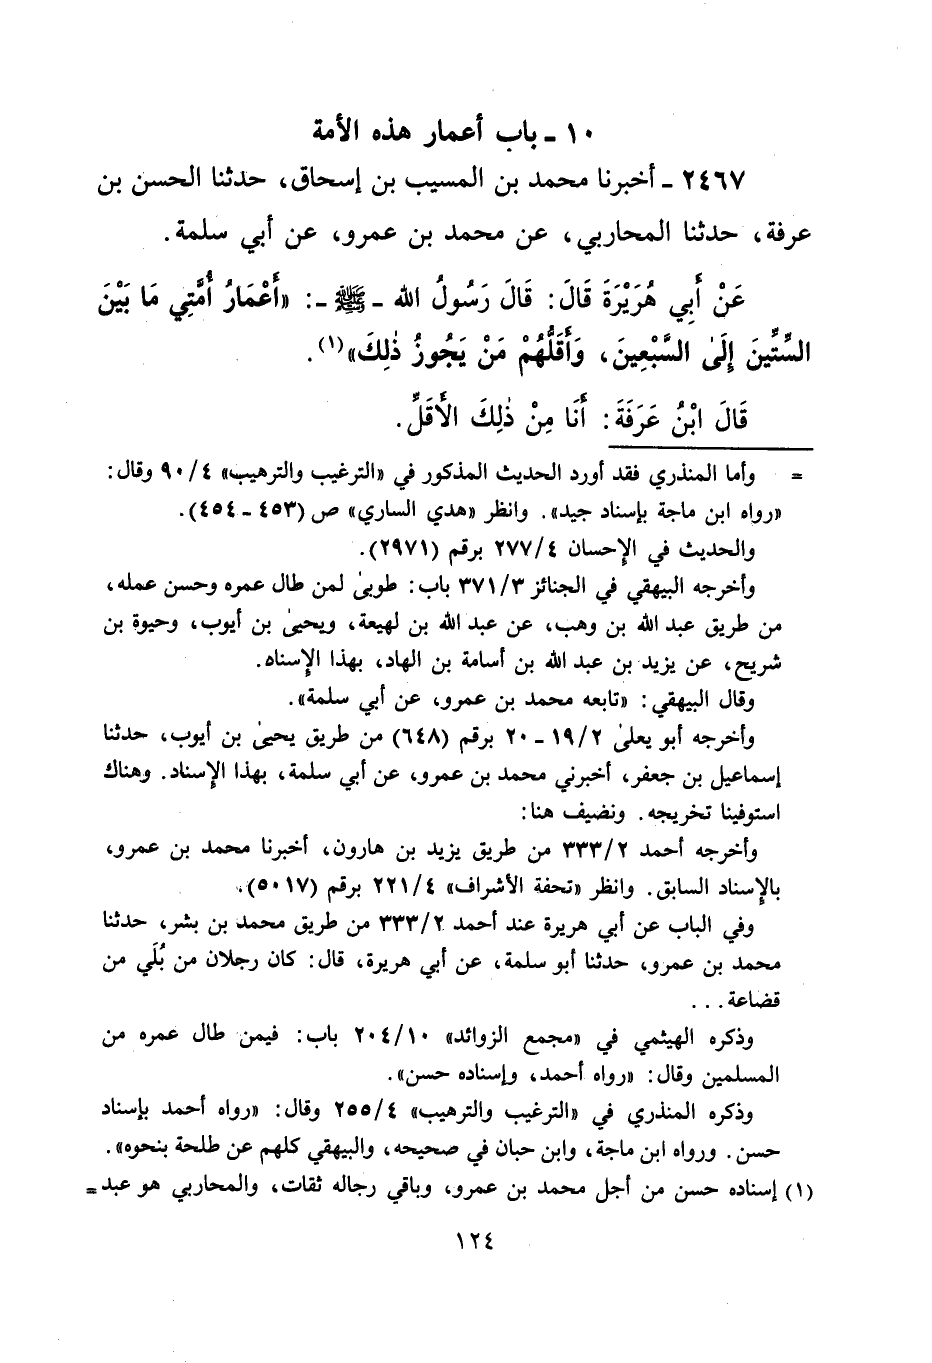 ١٠ ـ باب أعمار هذه الأمة
٢٤٦٧ ـ أخبرنا محمد بن المسيب بن إسحاق، حدثنا الحسن بن
عرفة، حدثنا المحاربي، عن محمد بن عمرو، عن أبي سلمة.
عَنْ أَبِي هُرَيْرَةَ قَالَ: قَالَ رَسُولُ الله ـ ﷺ ـ: «أَعْمَارُ أُمَّتِي مَا بَيْنَ
السِّتِّينَ إِلَىٰ السَّبْعِينَ، وَأَقَلُّهُمْ مَنْ يَجُوزُ ذٰلِكَ»(١).
قَالَ ابْنُ عَرَفَةَ: أَنَا مِنْ ذٰلِكَ الأَقَلِّ.
= وأما المنذري فقد أورد الحديث المذكور في «الترغيب والترهيب» ٩٠/٤ وقال:
«رواه ابن ماجة بإسناد جيد». وانظر «هدي الساري» ص (٤٥٣ ـ ٤٥٤).
والحديث في الإحسان ٢٧٧/٤ برقم (٢٩٧١).
وأخرجه البيهقي في الجنائز ٣٧١/٣ باب: طوبىٰ لمن طال عمره وحسن عمله،
من طريق عبد الله بن وهب، عن عبد الله بن لهيعة، ويحيىٰ بن أيوب، وحيوة بن
شريح، عن يزيد بن عبد الله بن أسامة بن الهاد، بهذا الإسناه.
وقال البيهقي: «تابعه محمد بن عمرو، عن أبي سلمة».
وأخرجه أبو يعلىٰ ١٩/٢ ـ ٢٠ برقم (٦٤٨) من طريق يحيىٰ بن أيوب، حدثنا
إسماعيل بن جعفر، أخبرني محمد بن عمرو، عن أبي سلمة، بهذا الإسناد. وهناك
استوفينا تخريجه. ونضيف هنا:
وأخرجه أحمد ٣٣٣/٢ من طريق يزيد بن هارون، أخبرنا محمد بن عمرو،
بالإسناد السابق. وانظر «تحفة الأشراف» ٢٢١/٤ برقم (٥٠١٧).
وفي الباب عن أبي هريرة عند أحمد ٣٣٣/٢ من طريق محمد بن بشر، حدثنا
محمد بن عمرو، حدثنا أبو سلمة، عن أبي هريرة، قال: كان رجلان من بُلَي من
قضاعة...
وذكره الهيثمي في «مجمع الزوائد» ٢٠٤/١٠ باب: فيمن طال عمره من
المسلمين وقال: «رواه أحمد، وإسناده حسن».
وذكره المنذري في «الترغيب والترهيب» ٢٥٥/٤ وقال: «رواه أحمد بإسناد
حسن. ورواه ابن ماجة، وابن حبان في صحيحه، والبيهقي كلهم عن طلحة بنحوه».
(١) إسناده حسن من أجل محمد بن عمرو، وباقي رجاله ثقات، والمحاربي هو عبد =
١٢٤